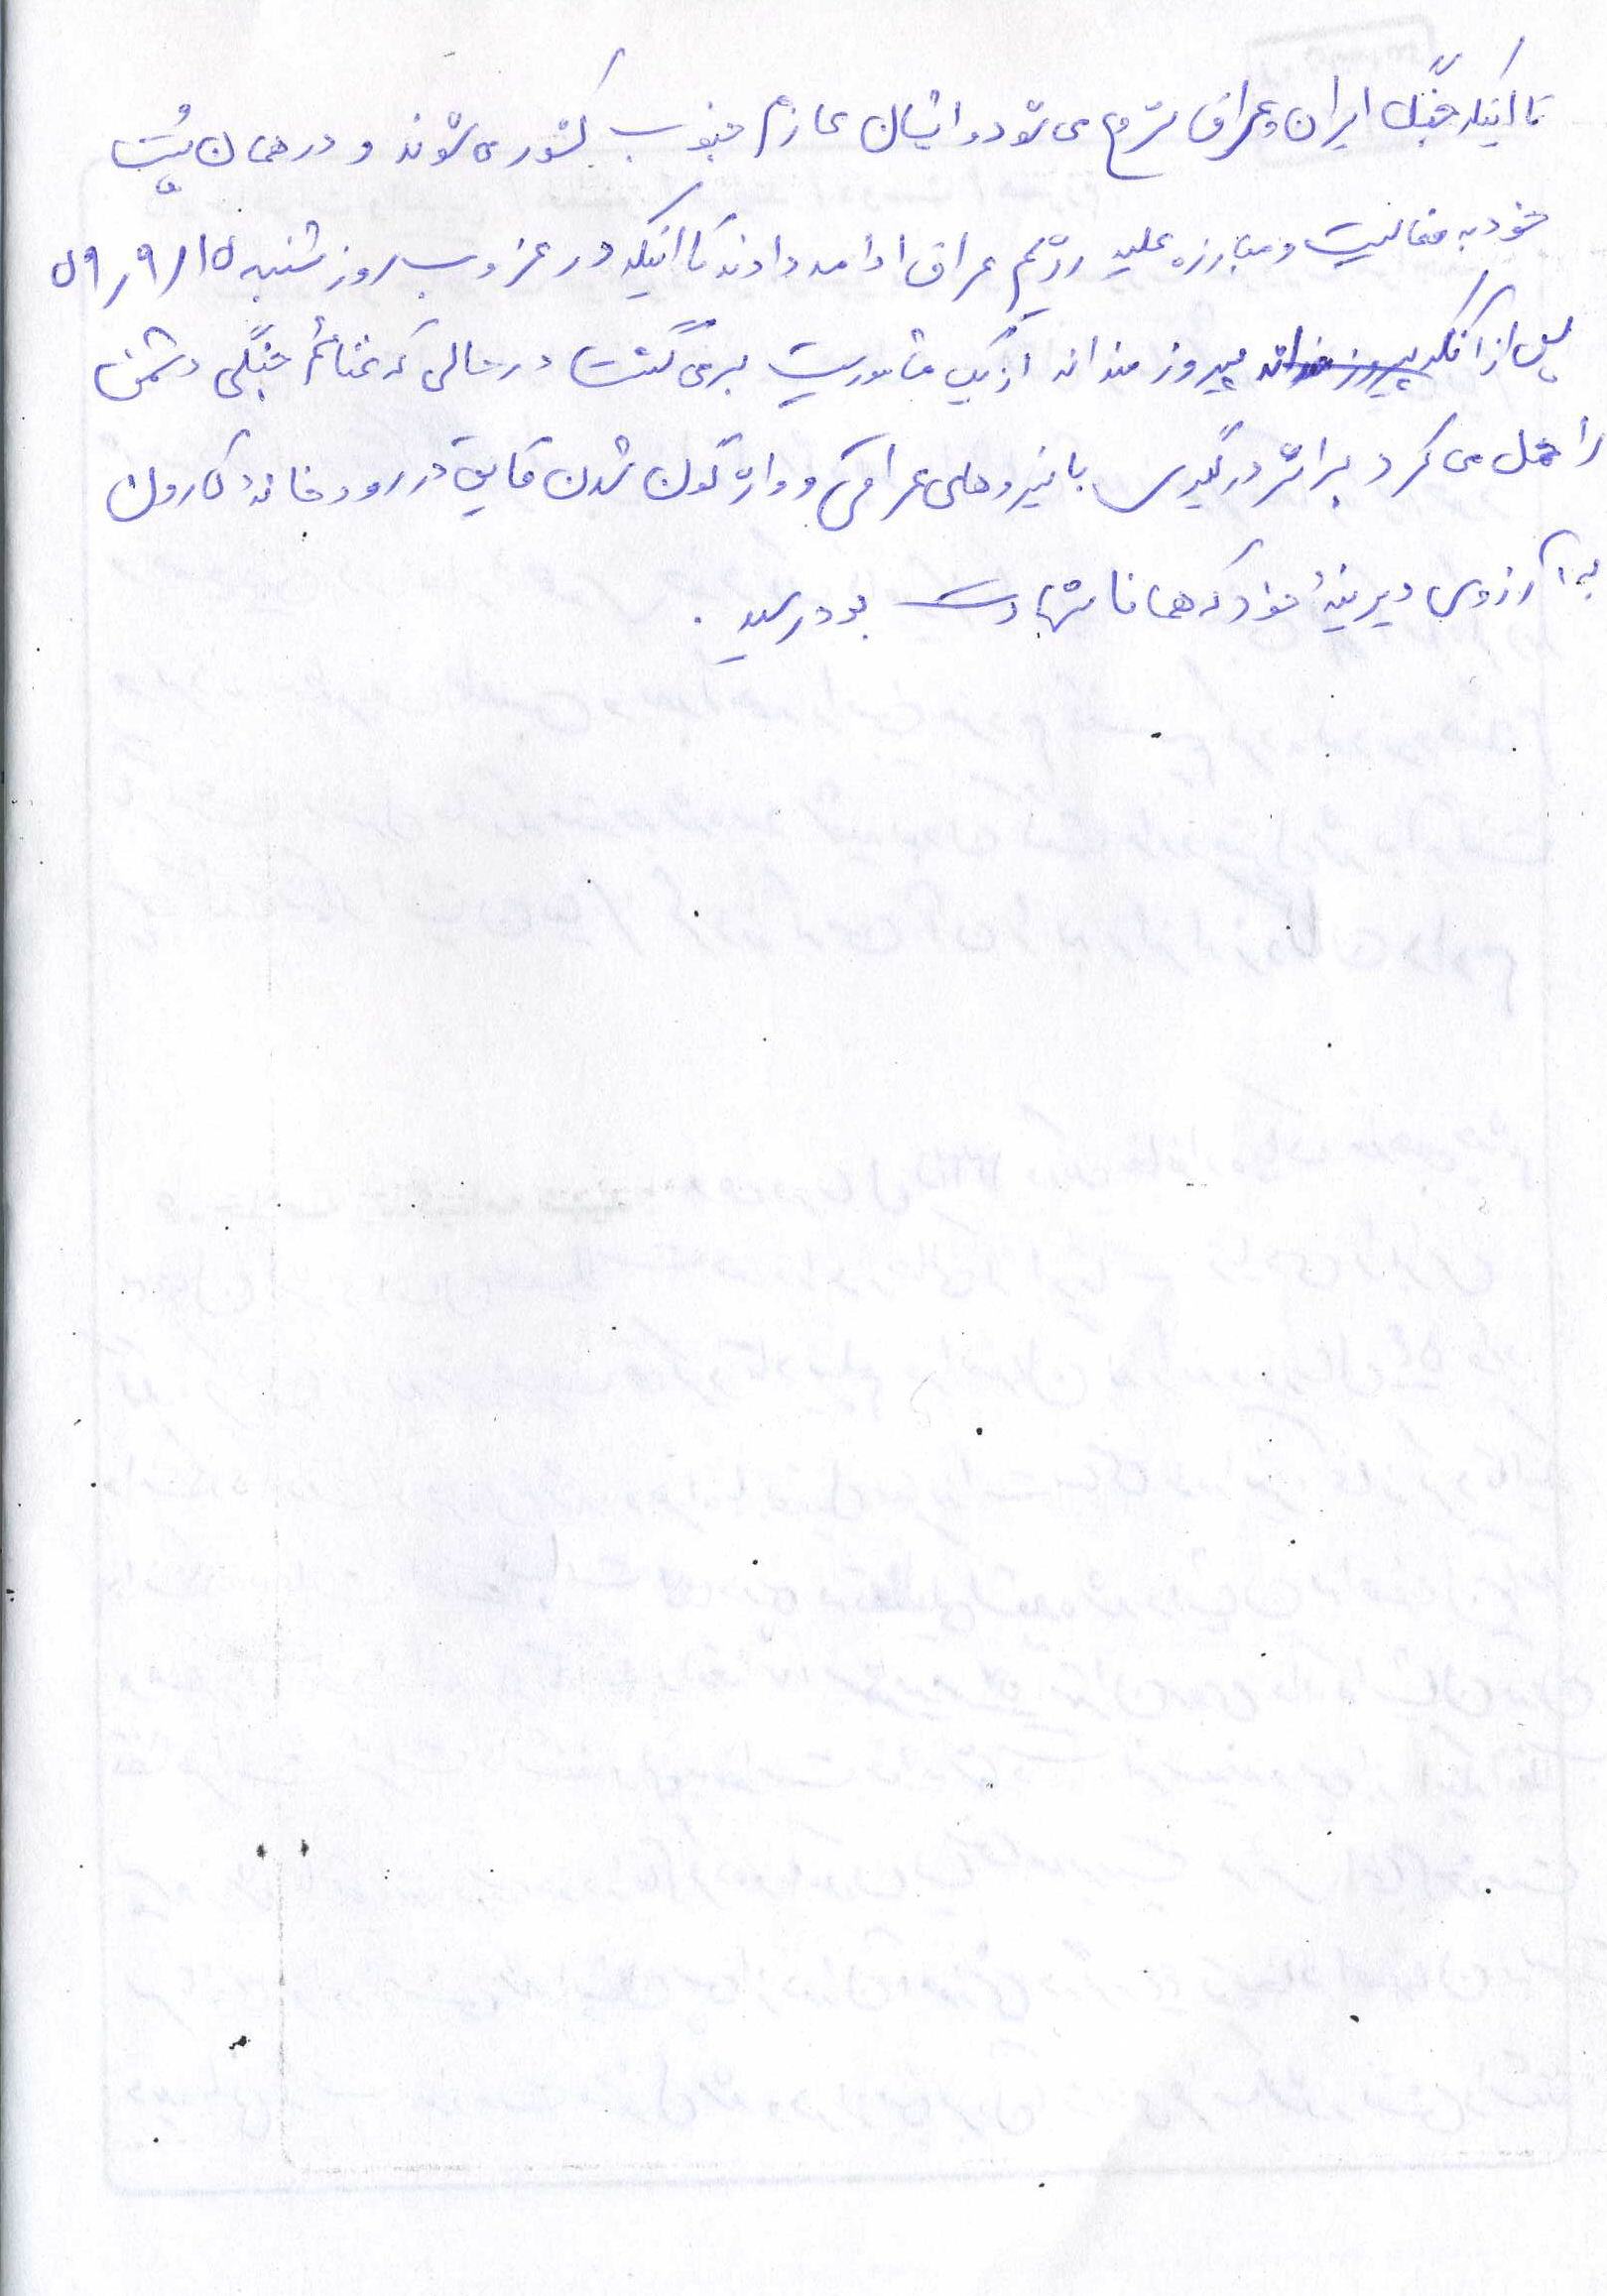 تا اینکه جنگ ایران و عراق شروع می شود و ایشان عازم جنوب کشور می شوند و در همان پست
خود به فعالیت و مبارزه علیه رژیم عراق ادامه دادند تا اینکه در غروب روز شنبه ۵۹٫۹٫۱۵
پس از آنکه پیروزمندانه از یک مأموریت برمی گشت در حالی که غنائم جنگی دشمن
را حمل می کرد بر اثر درگیری با نیروهای عراقی و واژگون شدن قایق در رودخانه کارون
به آرزوی دیرینهٔ خود که همانا شهادت بود رسید.